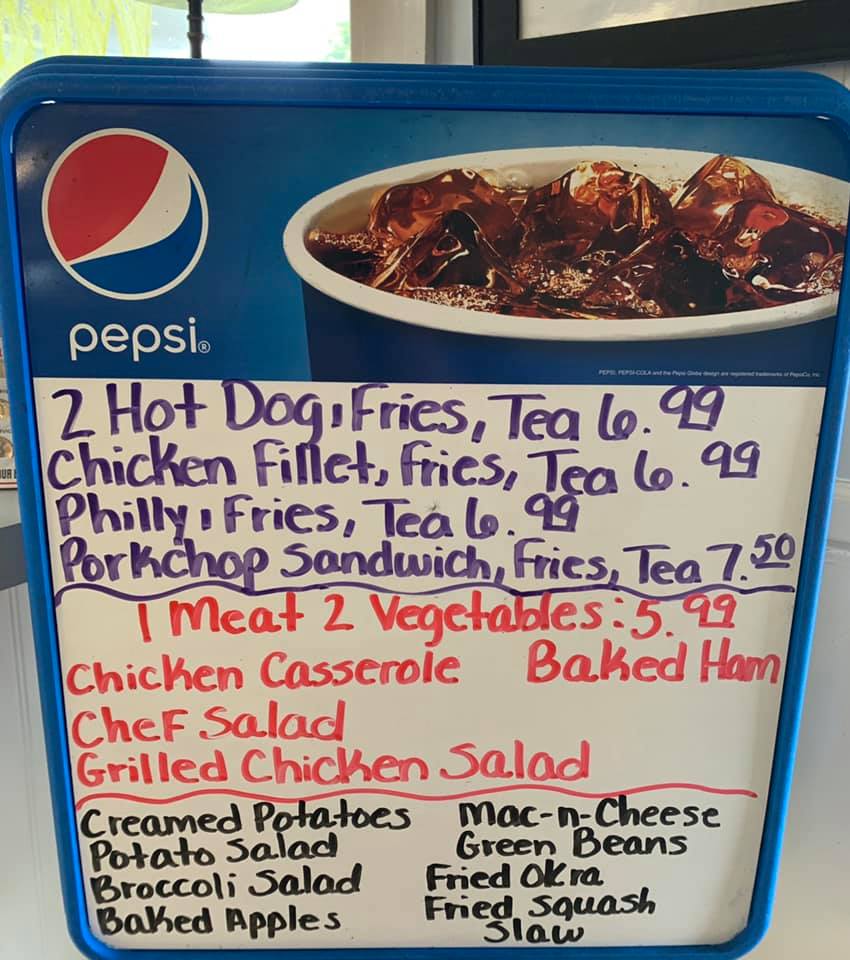 pepsi®
PEPSI, PEPSI-COLA and the Pepsi Globe design are registered trademarks of PepsiCo, Inc.
2 Hot Dog, Fries, Tea 6.99
Chicken Fillet, Fries, Tea 6.99
Philly, Fries, Tea 6.99
Porkchop Sandwich, Fries, Tea 7.50
1 Meat 2 Vegetables: 5.99
Chicken Casserole Baked Ham
Chef Salad
Grilled Chicken Salad
Creamed Potatoes Mac-n-Cheese
Potato Salad Green Beans
Broccoli Salad Fried Okra
Baked Apples Fried Squash
Slaw